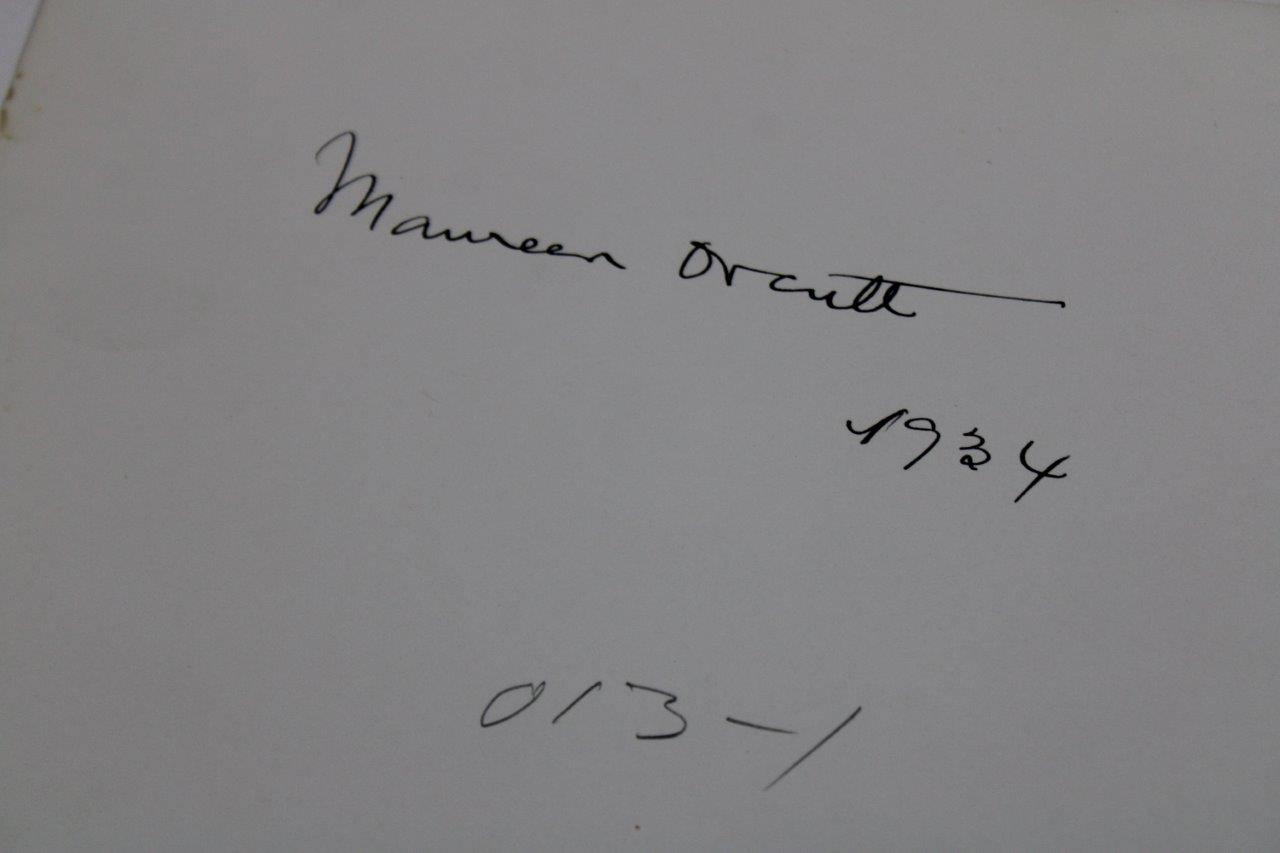 Maureen Orcutt
1934
013-1